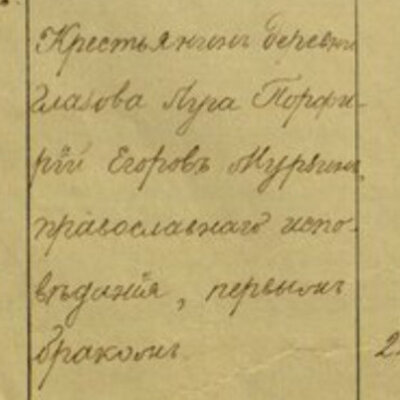 Крестьянинъ деревни
Глазова Луга Порфи-
рій Егоровъ Мурьинъ,
православнаго испо-
вѣданія, первымъ
бракомъ
2